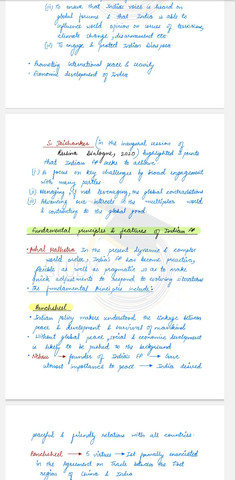 (iii) To ensure that India's voice is heard on
global forums & that India is able to
influence world opinion on issues of terrorism,
climate change, disarmament etc
(iv) To engage & protect Indian Diaspora
• Promoting international peace & security
• Economic development of India
S. Jaishankar (in the inaugural session of
Raisina Dialogue, 2020) highlighted points
that Indian FP seeks to achieve:
(i) A focus on key challenges by broad engagement
with many parties
(ii) Managing, if not leveraging, the global contradictions
(iii) Advancing our interests in the multipolar world
& contributing to the global good
Fundamental principles & features of Indian FP
In the present dynamic & complex
world order, India's FP has become proactive,
flexible as well as pragmatic so as to make
quick adjustments to respond to evolving situations
• The fundamental principles include:
Panchsheel
• Indian policy makers understand the linkage between
peace & development & survival of mankind
• Without global peace, social & economic development
is likely to be pushed to the background
• Nehru → founder of India's FP → gave
utmost importance to peace → India desired
peaceful & friendly relations with all countries
Panchsheel → 5 virtues → 1st formally enunciated
in the Agreement on Trade between the Tibet
region of China & India